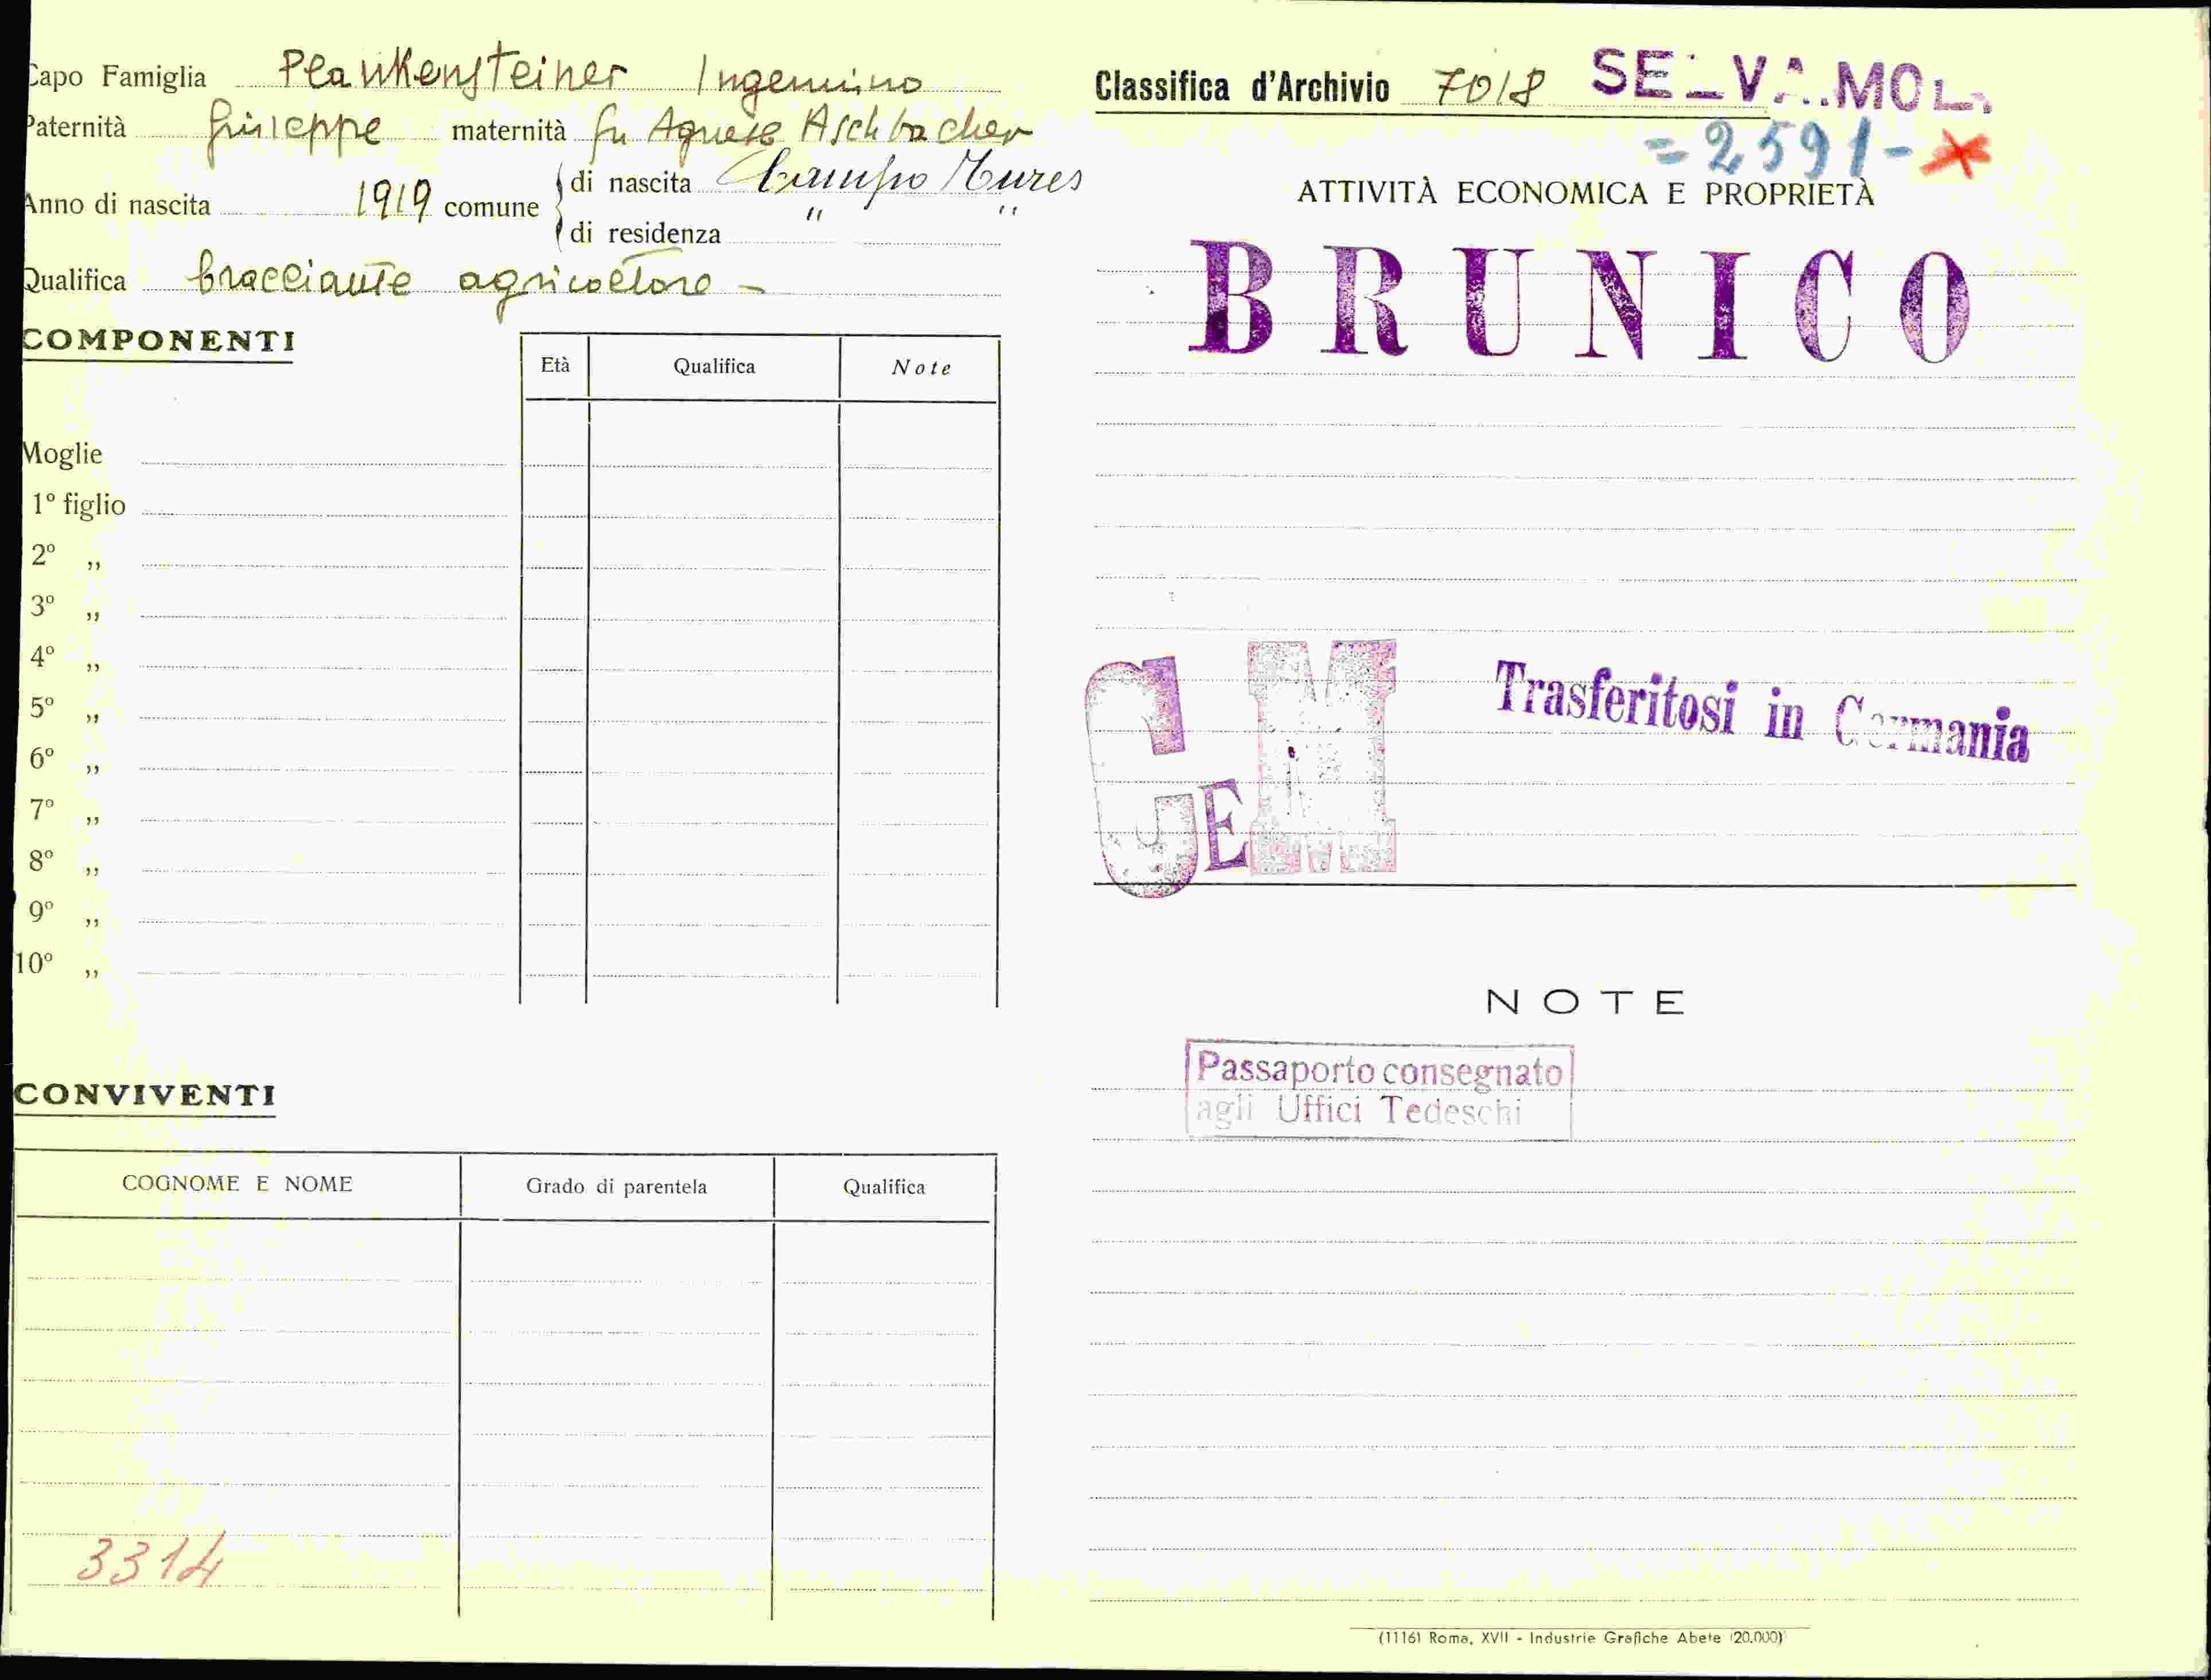 Capo Famiglia Plankensteiner Ingenuino
Paternità Giuseppe maternità fu Agnese Aschbacher
Anno di nascita 1919 comune di nascita Campo Tures
di residenza " "
Qualifica bracciante agricoltore -
COMPONENTI
Età Qualifica Note
Moglie
1º figlio
2º „
3º „
4º „
5º „
6º „
7º „
8º „
9º „
10º „
CONVIVENTI
COGNOME E NOME Grado di parentela Qualifica
3314
Classifica d'Archivio 7018 SELVA.MOL.
=2591-x
ATTIVITÀ ECONOMICA E PROPRIETÀ
BRUNICO
Trasferitosi in Germania
G E M
NOTE
Passaporto consegnato
agli Uffici Tedeschi
(1116) Roma, XVII - Industrie Grafiche Abete (20.000)